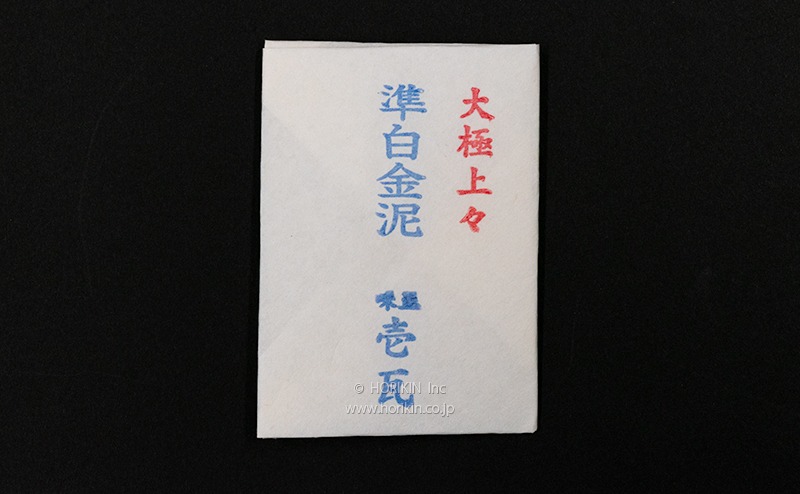 大極上々
準白金泥
正味
壱瓦
© HORIKIN Inc
www.horikin.co.jp